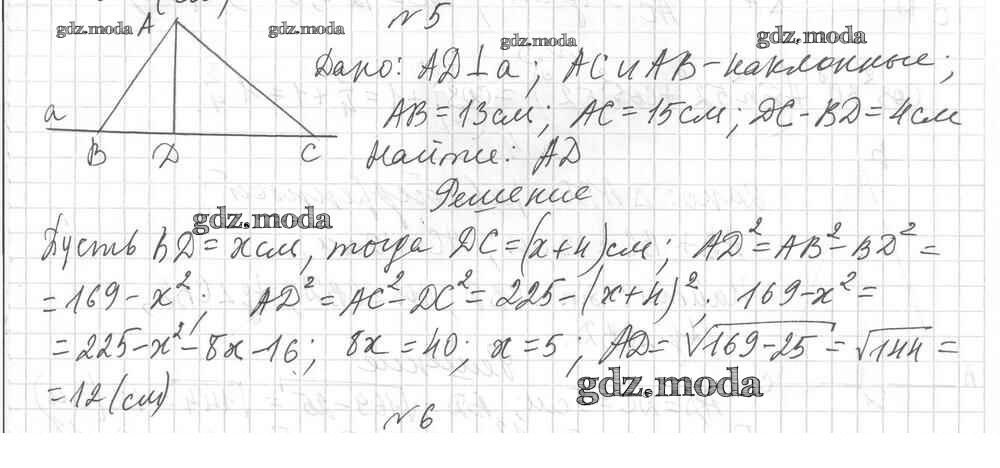 (см)
№5
gdz.moda
A
gdz.moda
gdz.moda
Дано: AD⊥a; AC и AB – наклонные;
a
AB = 13 см; AC = 15 см; DC - BD = 4 см
B D C
Найти: AD
Решение
gdz.moda
Пусть BD = x см, тогда DC = (x+4) см; AD² = AB² - BD² =
= 169 - x²; AD² = AC² - DC² = 225 - (x+4)²; 169 - x² =
= 225 - x² - 8x - 16; 8x = 40; x = 5; AD = √169-25 = √144 =
= 12 (см)
gdz.moda
№6